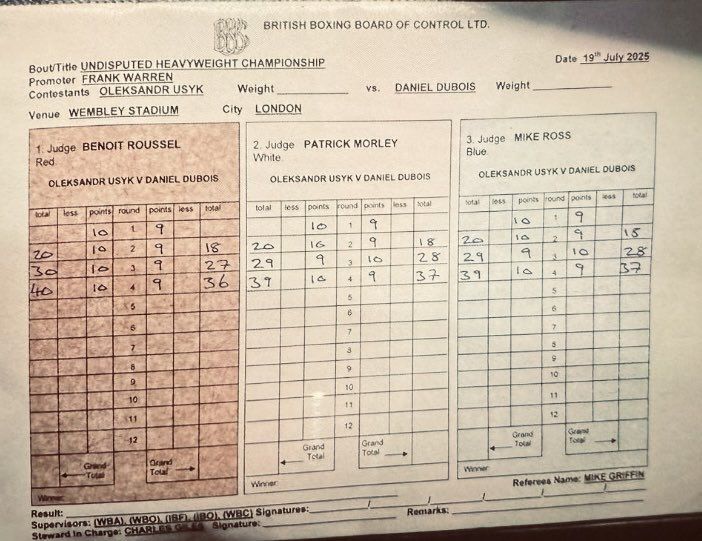 BBBC
BRITISH BOXING BOARD OF CONTROL LTD.
Bout/Title UNDISPUTED HEAVYWEIGHT CHAMPIONSHIP Date 19th July 2025
Promoter FRANK WARREN
Contestants OLEKSANDR USYK Weight vs. DANIEL DUBOIS Weight
Venue WEMBLEY STADIUM City LONDON
1. Judge BENOIT ROUSSEL
Red.
OLEKSANDR USYK V DANIEL DUBOIS
total less points round points less total
10 1 9
20 10 2 9 18
30 10 3 9 27
40 10 4 9 36
5
6
7
8
9
10
11
12
Grand Total Grand Total
Winner:
2. Judge PATRICK MORLEY
White.
OLEKSANDR USYK V DANIEL DUBOIS
total less points round points less total
10 1 9
20 10 2 9 18
29 9 3 10 28
39 10 4 9 37
5
6
7
8
9
10
11
12
Grand Total Grand Total
Winner:
3. Judge MIKE ROSS
Blue.
OLEKSANDR USYK V DANIEL DUBOIS
total less points round points less total
10 1 9
20 10 2 9 18
29 9 3 10 28
39 10 4 9 37
5
6
7
8
9
10
11
12
Grand Total Grand Total
Winner:
Referees Name: MIKE GRIFFIN
Result:
Supervisors: (WBA), (WBO), (IBF), (IBO), (WBC) Signatures: / / / /
Steward In Charge: CHARLES GILES Signature: Remarks: